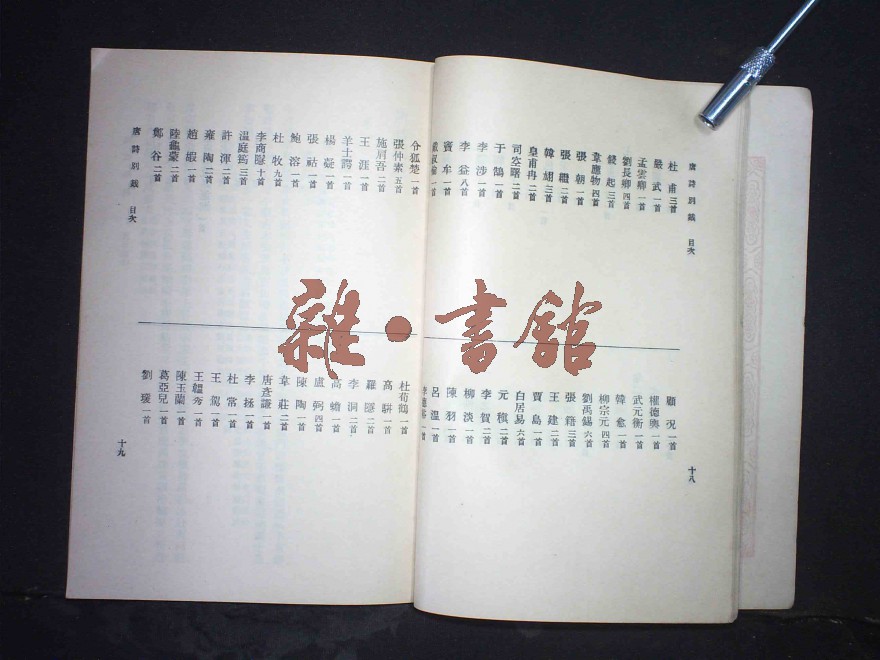 唐詩別裁 目次
杜甫三首
嚴武一首
孟雲卿一首
劉長卿四首
錢起三首
韋應物四首
張朝一首
張繼二首
韓翃三首
皇甫冉二首
司空曙二首
于鵠一首
李涉一首
李益八首
竇牟一首
戴叔倫一首
顧況一首
權德輿一首
武元衡一首
韓愈一首
柳宗元四首
劉禹錫六首
張籍三首
王建二首
賈島一首
白居易六首
元稹二首
李賀二首
柳淡一首
陳羽一首
呂溫一首
十八
令狐楚一首
張仲素五首
施肩吾二首
王涯一首
羊士諤一首
楊凝一首
張祜一首
鮑溶一首
杜牧九首
李商隱十首
溫庭筠三首
許渾二首
雍陶二首
趙嘏一首
陸龜蒙二首
鄭谷二首
唐詩別裁 目次
杜荀鶴一首
高駢一首
羅隱二首
李洞二首
高蟾一首
盧弼四首
陳陶一首
韋莊二首
唐彥謙一首
李拯一首
杜常一首
王駕一首
王韞秀一首
陳玉蘭一首
葛亞兒一首
劉瑗一首
十九
雜·書館